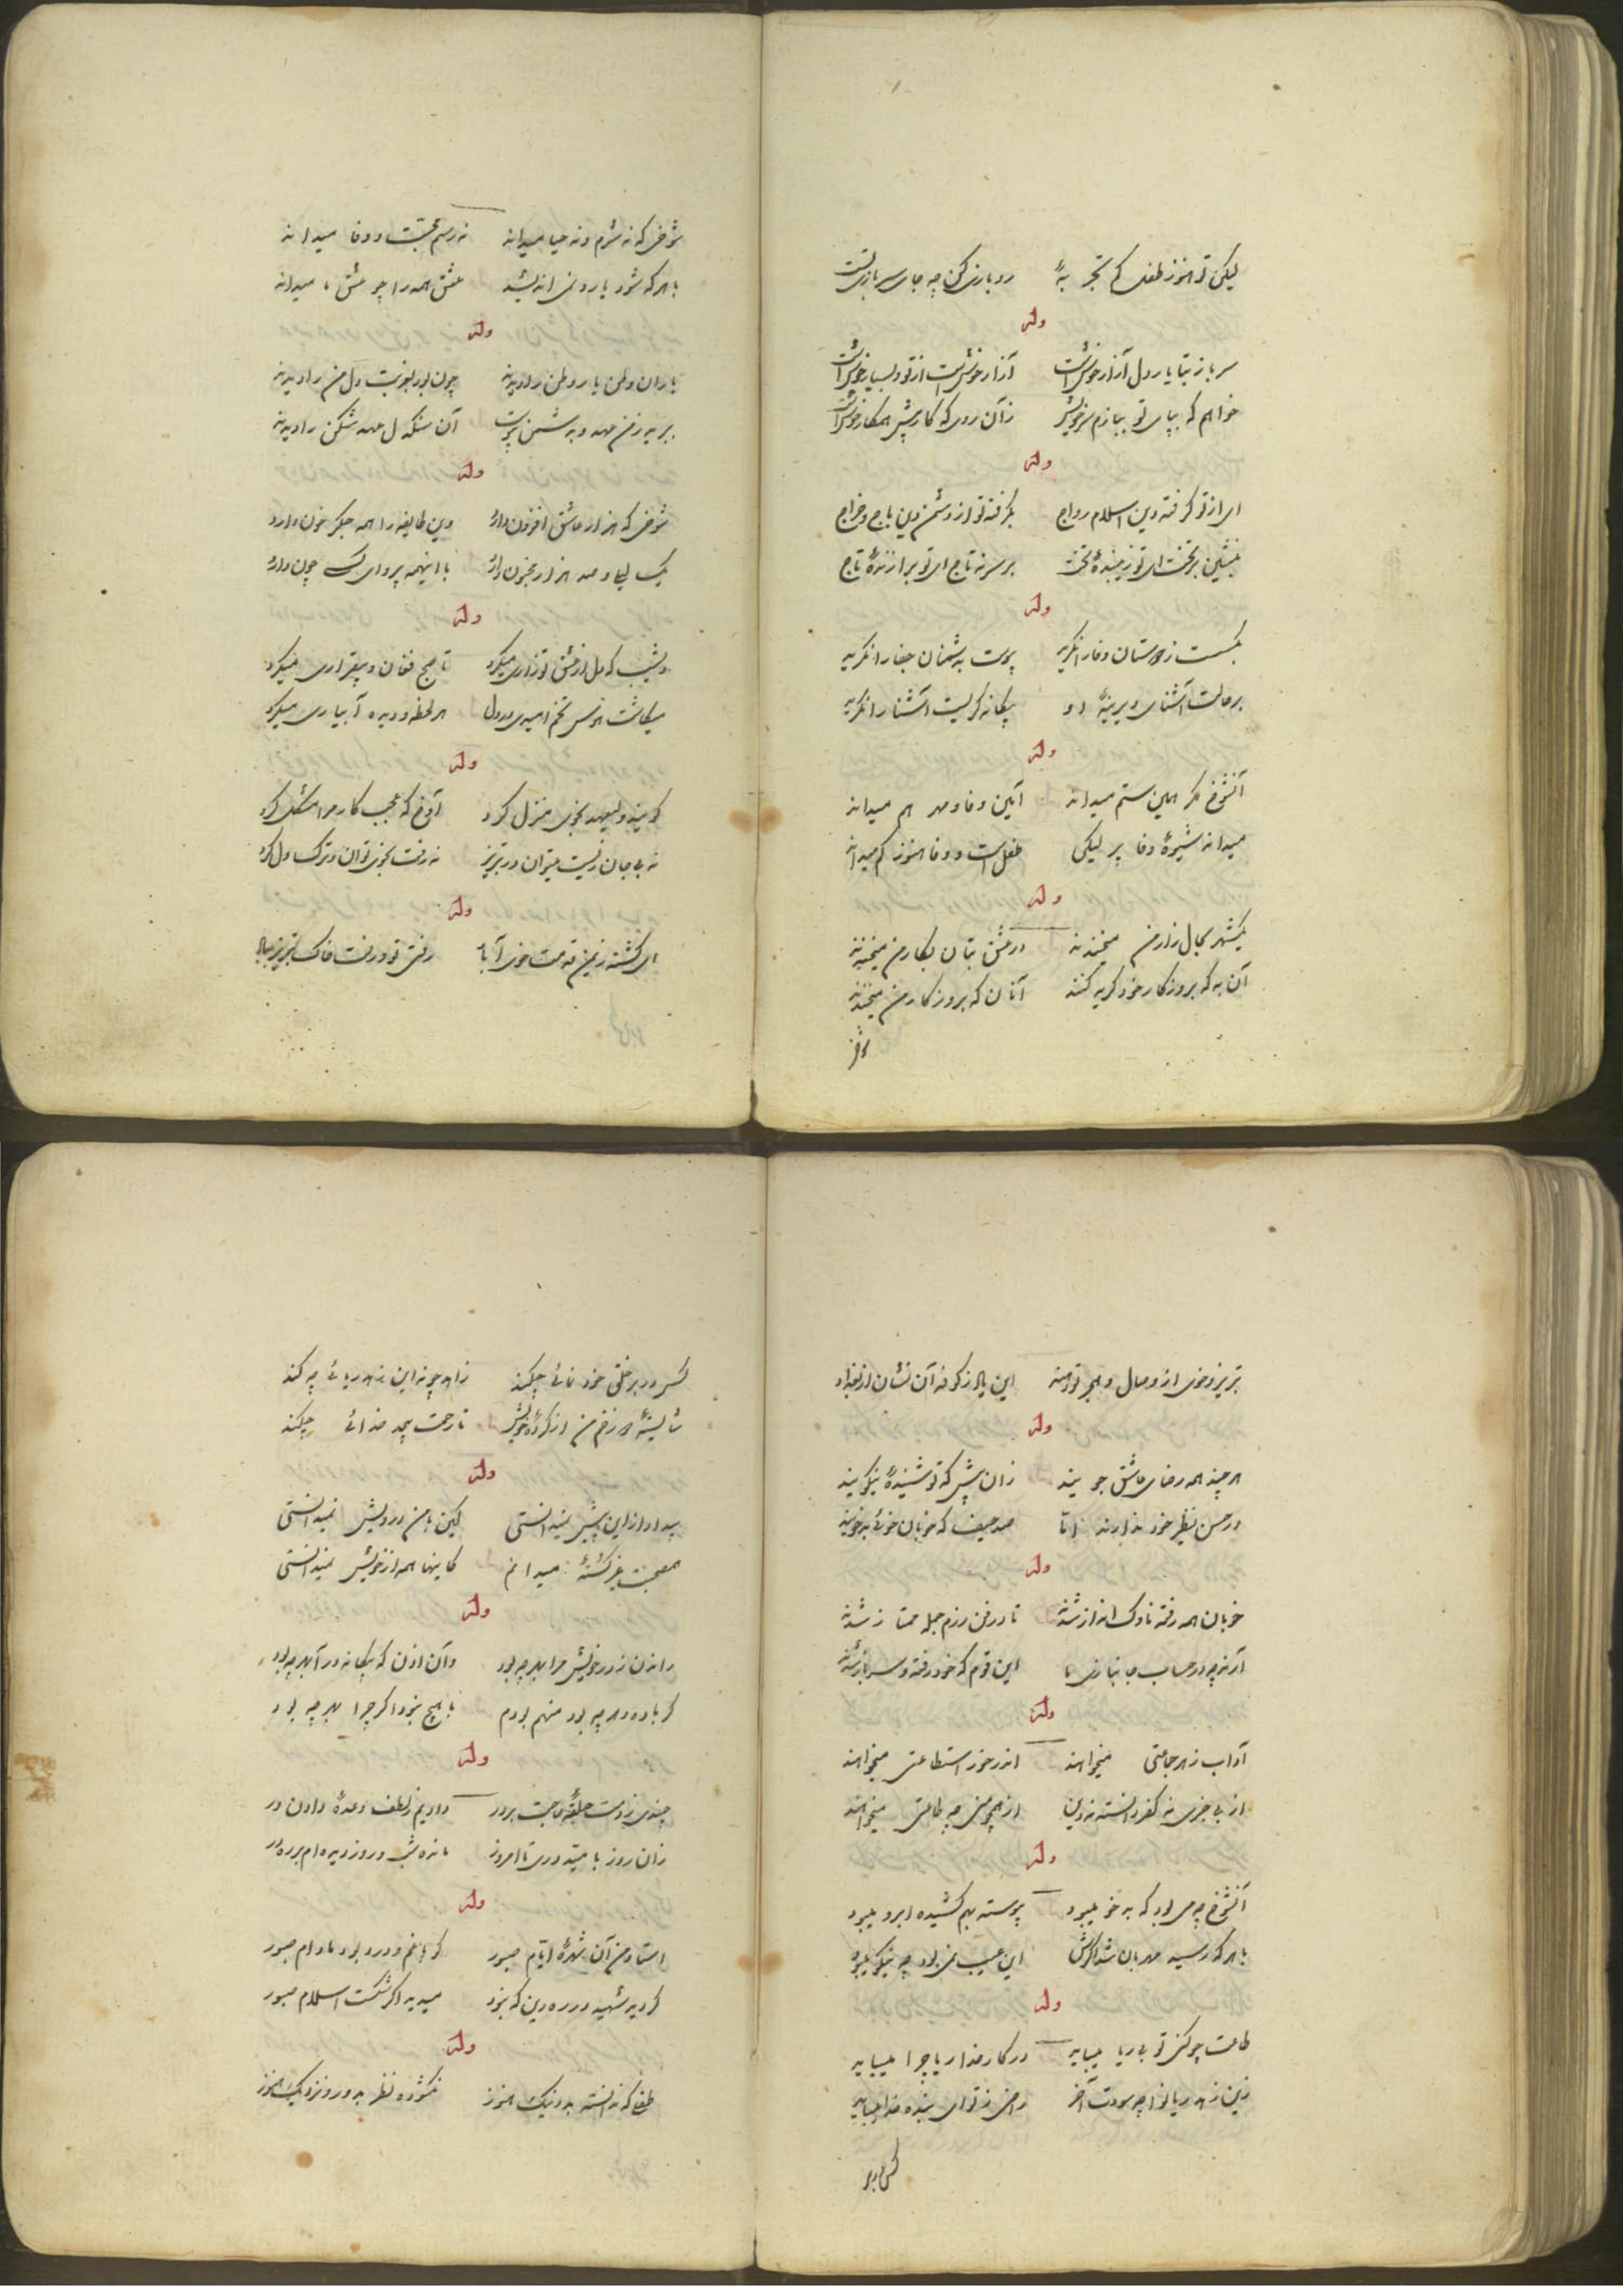 لیکن تو هنوز طفلی کم تجربهٔ رو بازی کن چه جای سربازی تست
وله
سرباز بتا یار دل آزار خوش است آزار خوش است از تو و بسیار خوش است
خواهم که بپای تو ببازم سر خویش زان روی که کار پیش همکار خوش است
وله
ای از تو گرفته دین اسلام رواج بگرفته تو از دشمن دین باج و خراج
بنشین بر تخت ای تو زیبندهٔ تخت بر سر نه تاج ای تو برازندهٔ تاج
وله
بگسست ز دوستان وفا را نگرید پیوست به دشمنان جفا را نگرید
بر حالت آشنای دیرینهٔ او بیگانه گریست آشنا را نگرید
وله
آنشوخ مگر همین ستم میداند آیین وفا و مهر هم میداند
میداند شیوهٔ وفا پر لیکن طفل است و وفا هنوز کم میداند
وله
یکشهر بحال زار من میخندند در عشق بتان بکار من میخندند
آن به که بروزگار خود گریه کنند آنان که بروزگار من میخندند
شوخی
شوخی که نه شرم و نه حیا میداند نه رسم محبت و وفا میداند
با هر که شود یار و نمی اندیشد عشق همه را چو عشق ما میداند
وله
یاران وطن یار وطن را دیدند چون بود بغربت دل من را دیدند
ببرید ز من عهد و به دشمن پیوست آن سنگدل عهد شکن را دیدند
وله
شوخی که هزار عاشق افزون دارد وین طایفه را همه جگر خون دارد
یک لیلی و صد هزار مجنون دارد با اینهمه پروای کسی چون دارد
وله
دیشب که دل از عشق تو زاری میکرد تا صبح فغان و بیقراری میکرد
میکاشت هوس تخم امیدی در دل هر لحظه دو دیده آبیاری میکرد
وله
گویند ولیعهد بخوی منزل کرد آوخ که عجب کار مرا مشکل کرد
نه بی جان زیست میتوان در تبریز نه رفت بخوی توان و ترک دل کرد
وله
ای گشته زیمن قدمت خوی آباد رفتی تو و رفت خاک تبریز بباد
تبریز و خوی از وصال و هجر تو دهند این یاد ز کوفه آن نشان از بغداد
وله
هر چند همه رضای عاشق جویند زان پیش که تو شنیدهٔ نیکویند
در حسن نظیر خود ندارند اما صد حیف که خوبان خوی بد خویند
وله
خوبان همه رفته ناوک انداز شدند تا در فن رزم جمله ممتاز شدند
آرند چه در حساب جانبازی ما این قوم که خود رفته و سرباز شدند
وله
آداب ز هر جماعتی میخواهند اندر خور استطاعتی میخواهند
از بی خبری نه کفر دانسته نه دین از همچو منی چه طاعتی میخواهند
وله
آنشوخ چه می بود که بد خو نبود پیوسته بهم کشیده ابرو نبود
با هر که رسید مهربان شد اگرش این عیب نمی بود چه نیکو نبود
وله
طاعت چو کنی تو بی ریا میباید در کار خدا ریا چرا میباید
زین زهد ریا خواجه سودت آخر راضی ز تو ای بنده خدا میباید
کس در بر
کس در بر خلق خود نمائی چکند زاهد چو نه این زهد ریائی چه کند
شایستهٔ دوزخ من از کردهٔ خویش تا رحمت بیحد خدائی چکند
وله
بیداد از این پیش نمیدانستی کین با من درویش نمیدانستی
همصحبت غیر گشتهٔ میدانم کاینها همه از خویش نمیدانستی
وله
راندن ز در خویش مرا بهر چه بود وآن اذن که بیگانه درآ بهر چه بود
گر با دو دهر چه بود منهم بودم با هیچ نبود اگر چرا بهر چه بود
وله
چندی زد دست حلقهٔ حاجت بر در دادیم زلطف وعدهٔ دادن در
زان روز بامید دری تا امروز مانده شب و روز دیده ام بر در
وله
استاد من آن شهرهٔ ایام صبور کو با غم و درد بود مادام صبور
گردید شهید در ره دین که نبود میدید اگر شکست اسلام صبور
وله
طفلی که ندانسته بد و نیک هنوز نگشوده نظر بدور و نزدیک هنوز